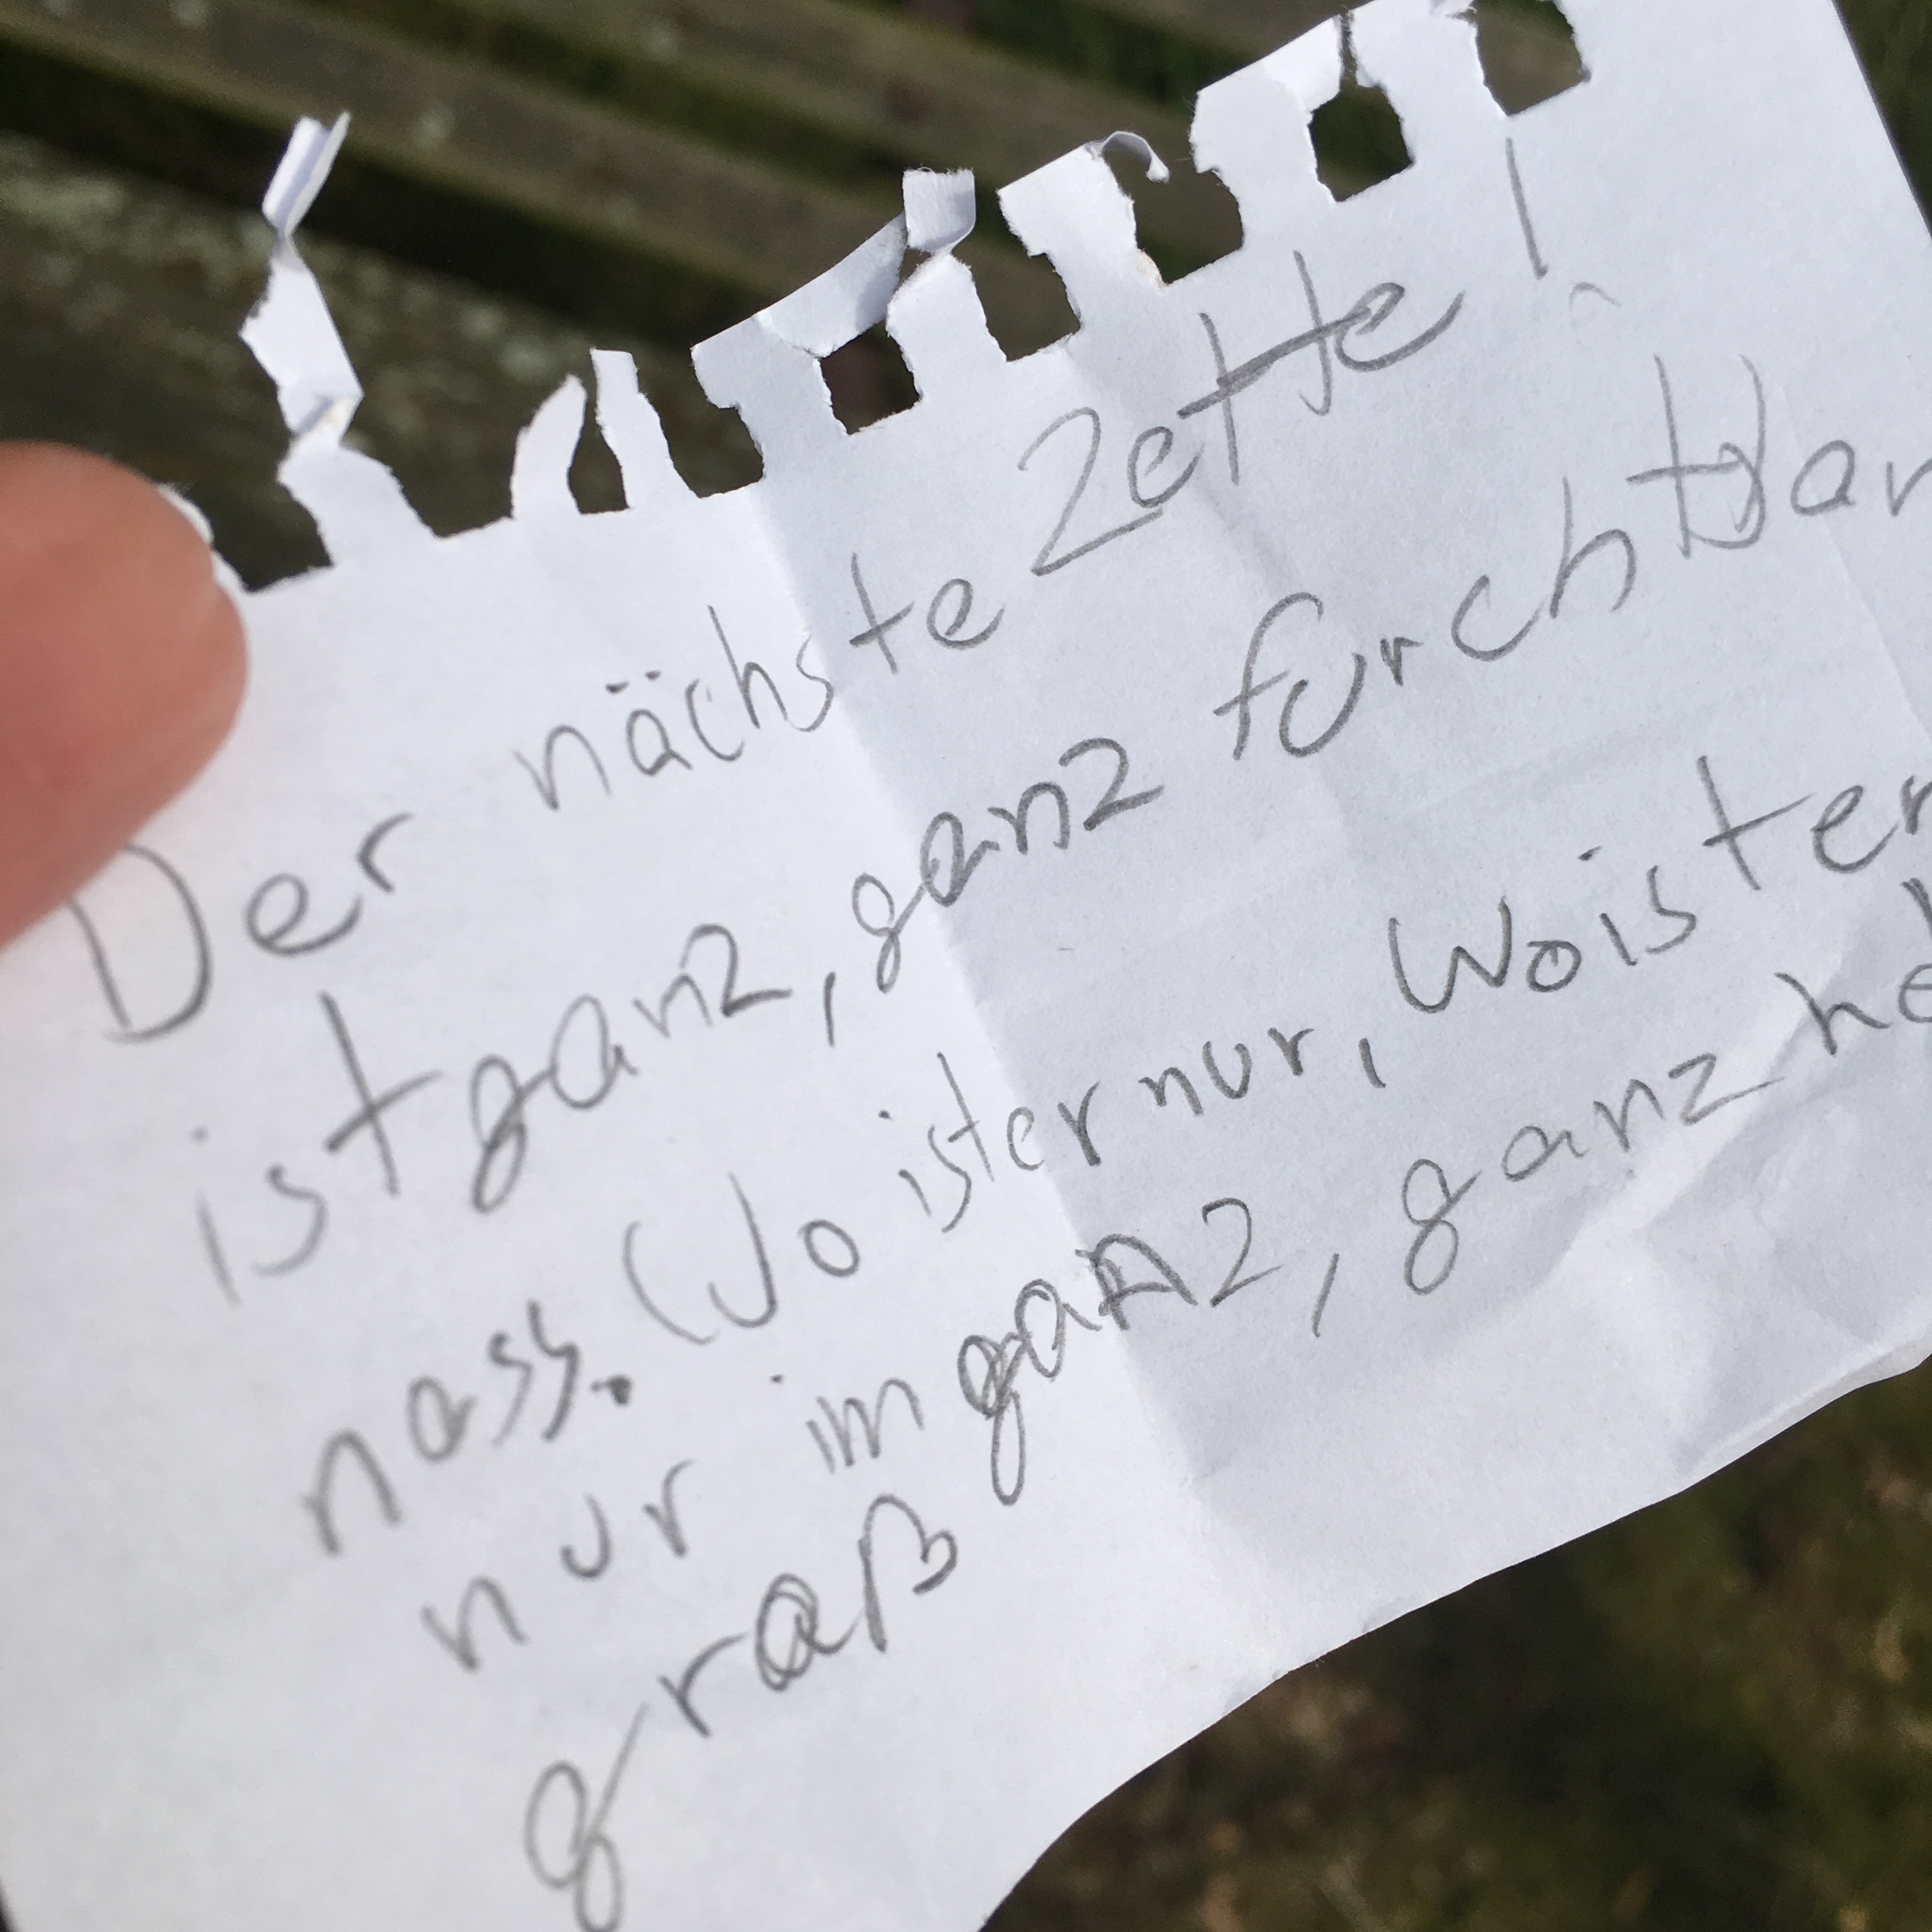 Der nächste Zette!
ist ganz, ganz furchtbar
nass. Wo ist er nur, Wo ist er
nur im ganz, ganz
graß